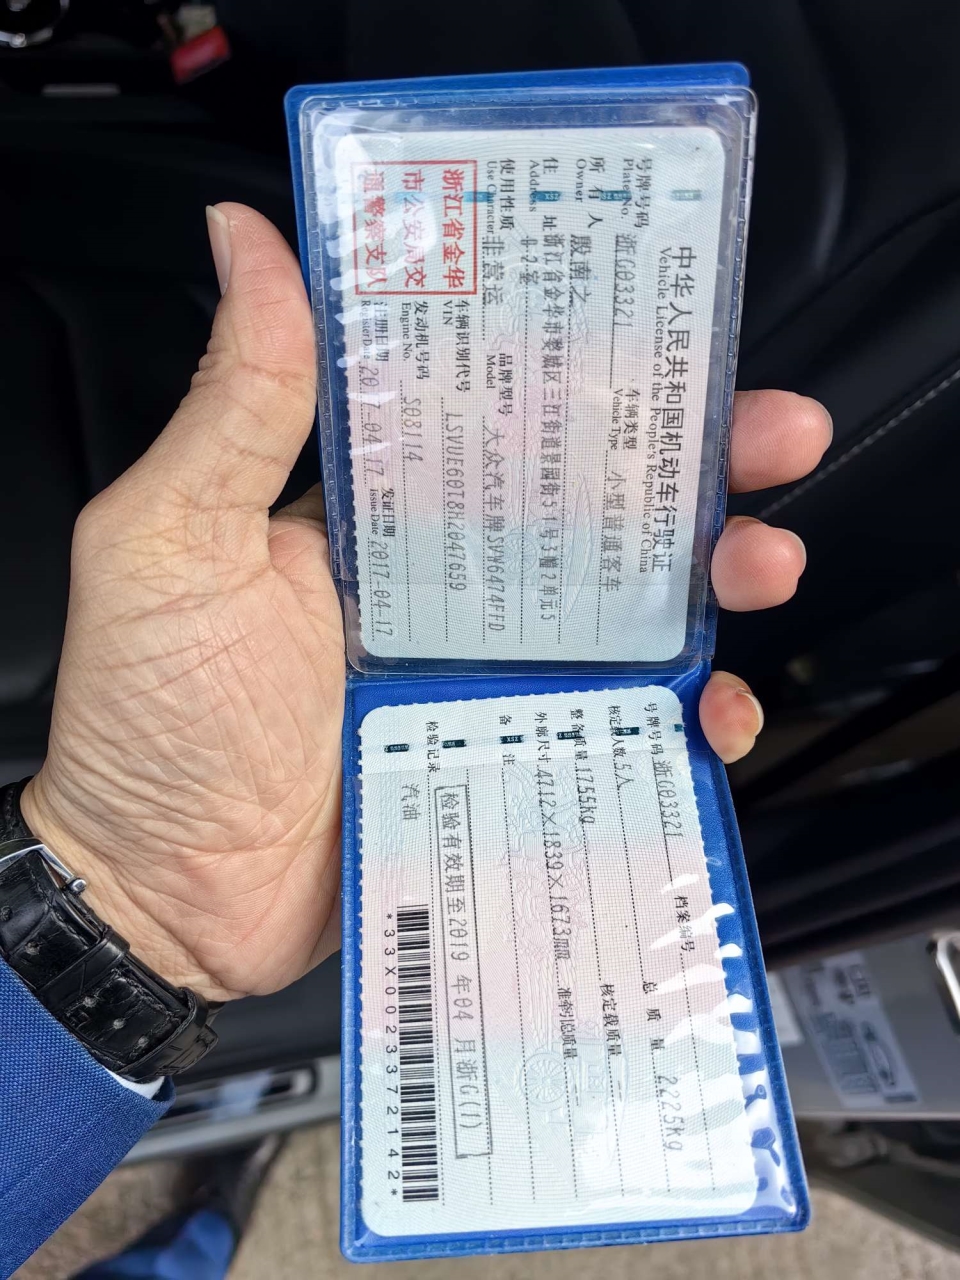 中华人民共和国机动车行驶证
Vehicle License of the People's Republic of China
号牌号码 浙G03321 车辆类型 小型普通客车
Plate No. Vehicle Type
所有人 殷南之
Owner
住址 浙江省金华市婺城区三江街道景园街5-1号3幢2单元5
Address 4-2室
使用性质 非营运 品牌型号 大众汽车牌SVW6474FFD
Use Character Model
浙江省金华
市公安局交
通警察支队
车辆识别代号 LSVUE60T8H2047659
VIN
发动机号码 S08114
Engine No.
注册日期 2017-04-17 发证日期 2017-04-17
Register Date Issue Date
号牌号码 浙G03321 档案编号
核定载人数 5人 总质量 2225kg
整备质量 1755kg 核定载质量
外廓尺寸 4712×1839×1673mm 准牵引总质量
备注
检验有效期至2019年04月浙G(1)
检验记录
汽油
*33X0023372142*